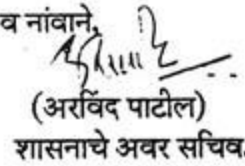 व नांवाने,
(अरविंद पाटील)
शासनाचे अवर सचिव.